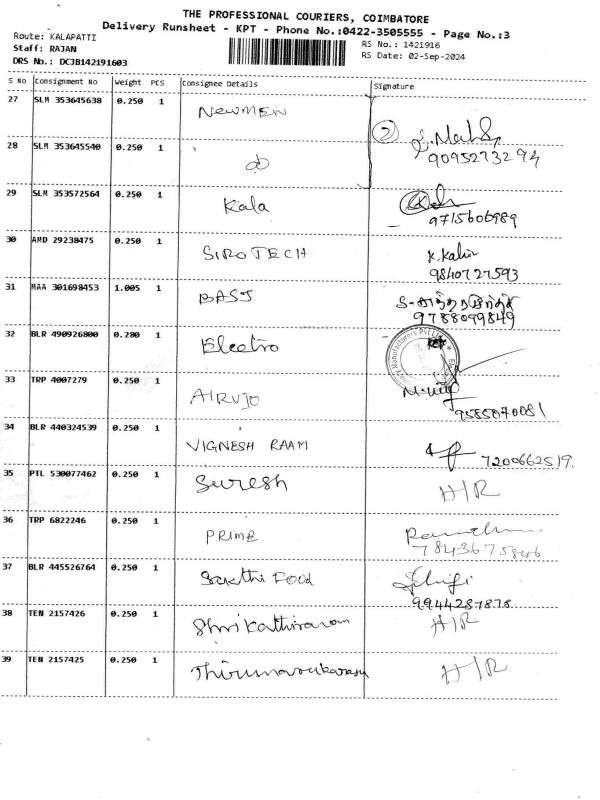 THE PROFESSIONAL COURIERS, COIMBATORE
Delivery Runsheet - KPT - Phone No.:0422-3505555 - Page No.:3
Route: KALAPATTI
Staff: RAJAN
DRS No.: DCJB142191603
RS No.: 1421916
RS Date: 02-Sep-2024
S No Consignment No Weight PCS Consignee Details Signature
27 SLM 353645638 0.250 1 NEWMEN
28 SLM 353645540 0.250 1 do 2 9095273294
29 SLM 353572564 0.250 1 Kala 9715606989
30 AMD 29238475 0.250 1 SIROTECH K.Kabir
9840727593
31 MAA 301698453 1.005 1 BASS
9788099849
32 BLR 490926800 0.280 1 Electro
33 TRP 4007279 0.250 1 AIRVIO
9585070081
34 BLR 440324539 0.250 1 VIGNESH RAAM 7200662519.
35 PTL 530077462 0.250 1 Suresh H/R
36 TRP 6822246 0.250 1 PRIME
7843675846
37 BLR 445526764 0.250 1 Sakthi Food
9944287878
38 TEN 2157426 0.250 1 Shrikathiravan H/R
39 TEN 2157425 0.250 1 Thirunavukarasu H/R